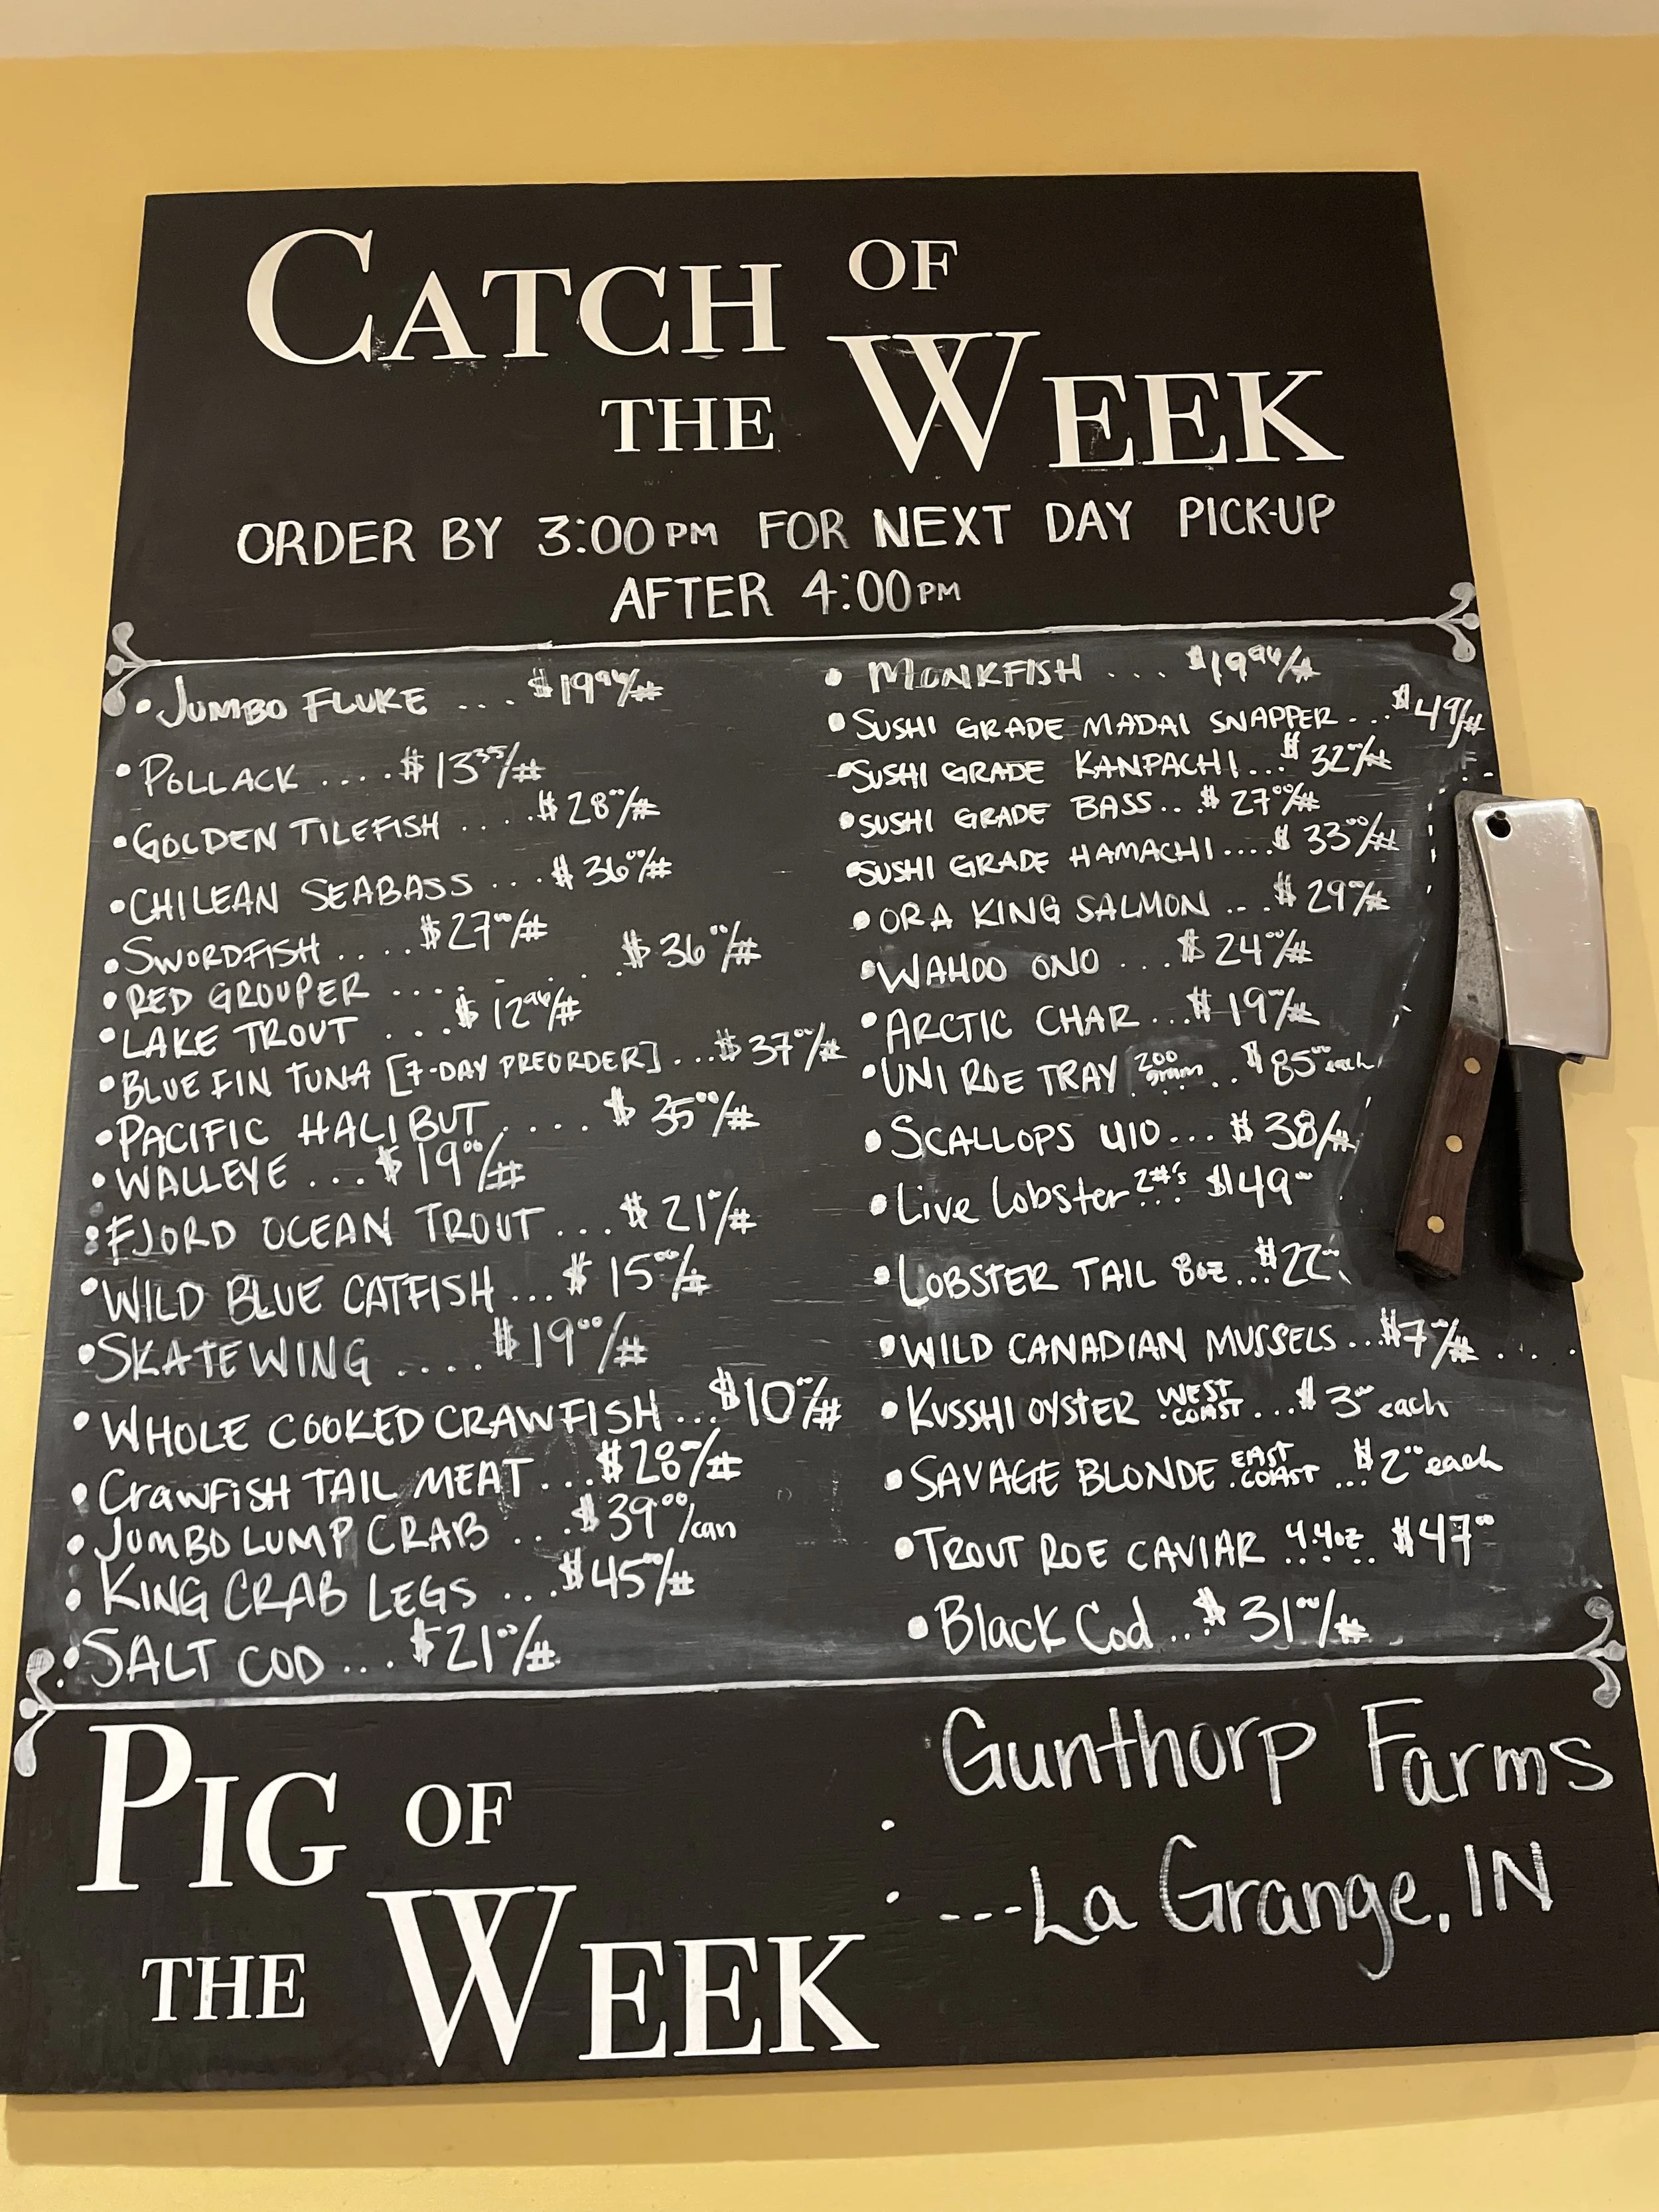 CATCH OF
THE WEEK
ORDER BY 3:00PM FOR NEXT DAY PICK-UP
AFTER 4:00PM
• JUMBO FLUKE .... $19.96/#
• POLLACK .... $13.35/#
• GOLDEN TILEFISH .... $28.00/#
• CHILEAN SEABASS ... $36.00/#
• SWORDFISH .... $27.00/#
• RED GROUPER ....... $36.00/#
• LAKE TROUT .... $12.96/#
• BLUE FIN TUNA [7-DAY PREORDER] ... $37.00/#
• PACIFIC HALIBUT .... $35.00/#
• WALLEYE ... $19.00/#
• FJORD OCEAN TROUT ... $21/#
• WILD BLUE CATFISH ... $15.00/#
• SKATEWING .... $19.00/#
• WHOLE COOKED CRAWFISH ... $10.00/#
• Crawfish TAIL MEAT ... $28/#
• JUMBO LUMP CRAB ... $39.00/can
• KING CRAB LEGS ... $45.00/#
• SALT COD ... $21.00/#
• MONKFISH ... $19.96/#
• SUSHI GRADE MADAI SNAPPER ... $49/#
• SUSHI GRADE KANPACHI ... $32.00/#
• SUSHI GRADE BASS .. $27.00/#
• SUSHI GRADE HAMACHI .... $33.00/#
• ORA KING SALMON ... $29.00/#
• WAHOO ONO ... $24.00/#
• ARCTIC CHAR ... $19/#
• UNI ROE TRAY 200 gram .. $85.00 each
• SCALLOPS U10 ... $38/#
• Live Lobster 2#'s $49.00
• LOBSTER TAIL 8oz ... $22
• WILD CANADIAN MUSSELS ... $7/#
• KUSSHI OYSTER WEST COAST ... $3.00 each
• SAVAGE BLONDE EAST COAST ... $2.00 each
• TROUT ROE CAVIAR 4.4oz $47.00
• Black Cod ... $31.00/#
PIG OF
THE WEEK
Gunthorp Farms
---La Grange, IN